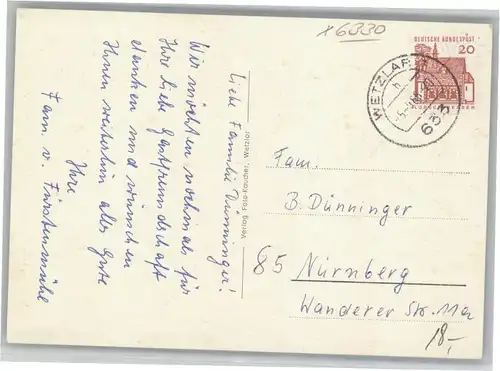 x6330
DEUTSCHE BUNDESPOST
20
WETZLAR
633
Liebe Familie Dünninger!
Wir möchten nochmals für
Ihre liebe Gastfreundschaft
danken und wünschen
Ihnen weiterhin alles Gute
Ihre
Fam. v. Fürstenmühl
Verlag Foto-Kauschau, Wetzlar
Fam.
B. Dünninger
85 Nürnberg
Wanderer Str. 11a
18,-